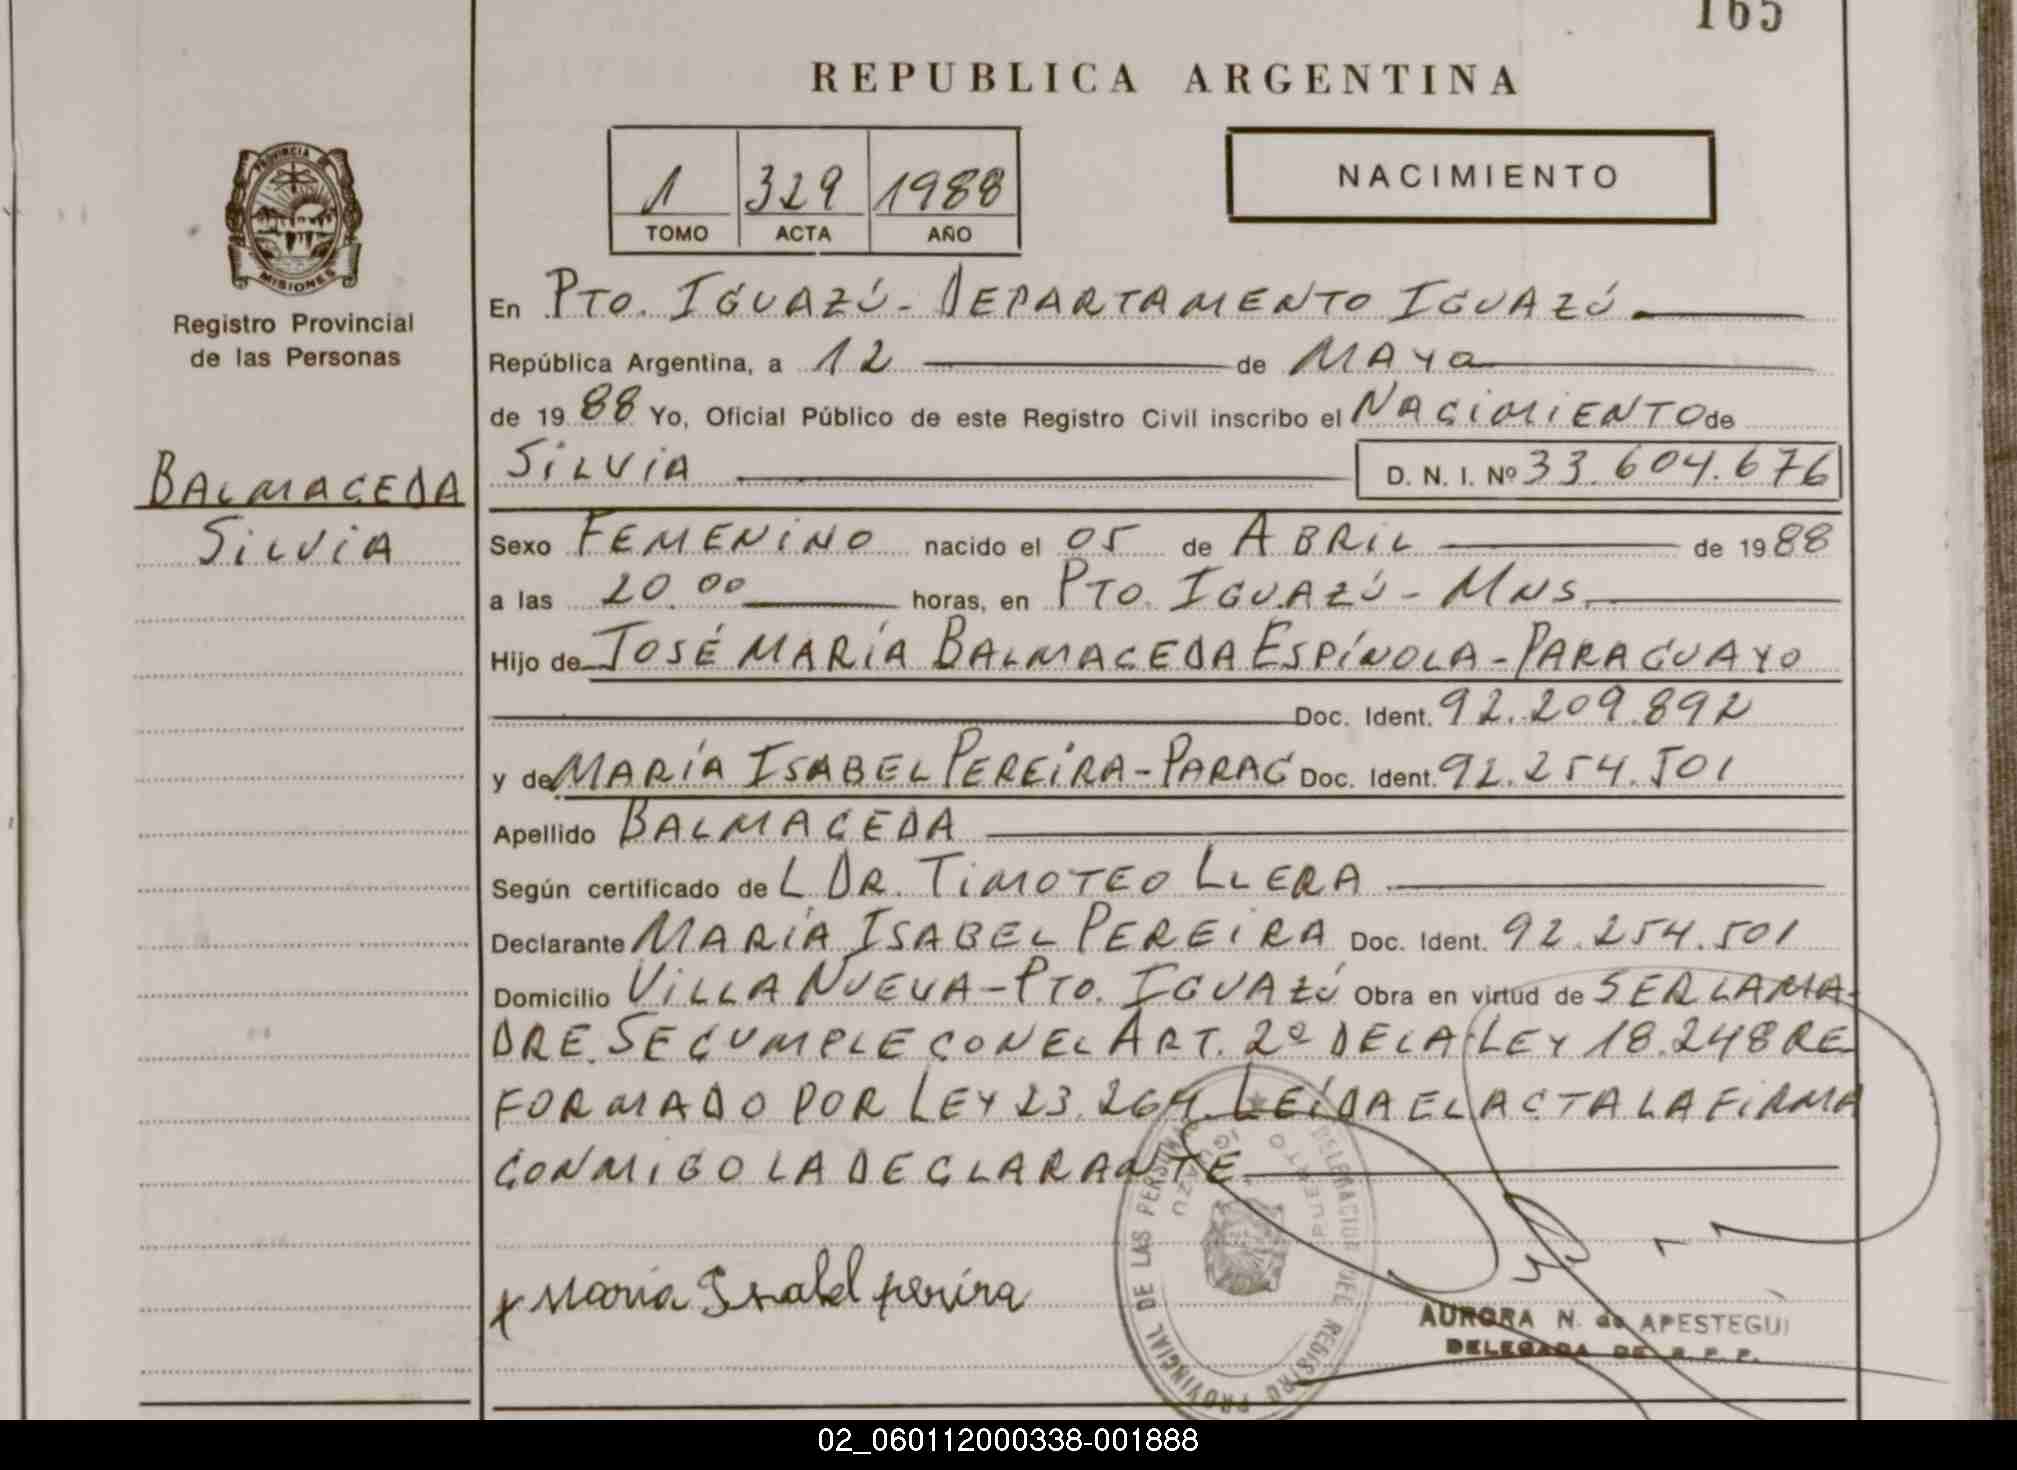 165
REPUBLICA ARGENTINA
1 329 1988
TOMO ACTA AÑO
NACIMIENTO
PROVINCIA DE
MISIONES
Registro Provincial
de las Personas
BALMACEDA
SILVIA
En PTO. IGUAZÚ - DEPARTAMENTO IGUAZÚ
República Argentina, a 12 de MAYO
de 1988 Yo, Oficial Público de este Registro Civil inscribo el NACIMIENTO de
SILVIA D. N. I. Nº 33.604.676
Sexo FEMENINO nacido el 05 de ABRIL de 1988
a las 20.00 horas, en PTO. IGUAZÚ - MNS.
Hijo de JOSÉ MARÍA BALMACEDA ESPÍNOLA - PARAGUAYO
Doc. Ident. 92.209.892
y de MARÍA ISABEL PEREIRA - PARAG Doc. Ident. 92.254.501
Apellido BALMACEDA
Según certificado de L DR. TIMOTEO LLERA
Declarante MARÍA ISABEL PEREIRA Doc. Ident. 92.254.501
Domicilio VILLA NUEVA - PTO. IGUAZÚ Obra en virtud de SER LA MA-
DRE. SE CUMPLE CON EL ART. 2º DE LA LEY 18.248 RE
FORMADO POR LEY 23.264. LEÍDA EL ACTA LA FIRMA
CONMIGO LA DECLARANTE
x Maria Isabel pereira
DELEGACION DEL REGISTRO PROVINCIAL DE LAS PERSONAS
PUERTO IGUAZU
AURORA N. de APESTEGUI
DELEGADA DE R. P. P.
02_060112000338-001888